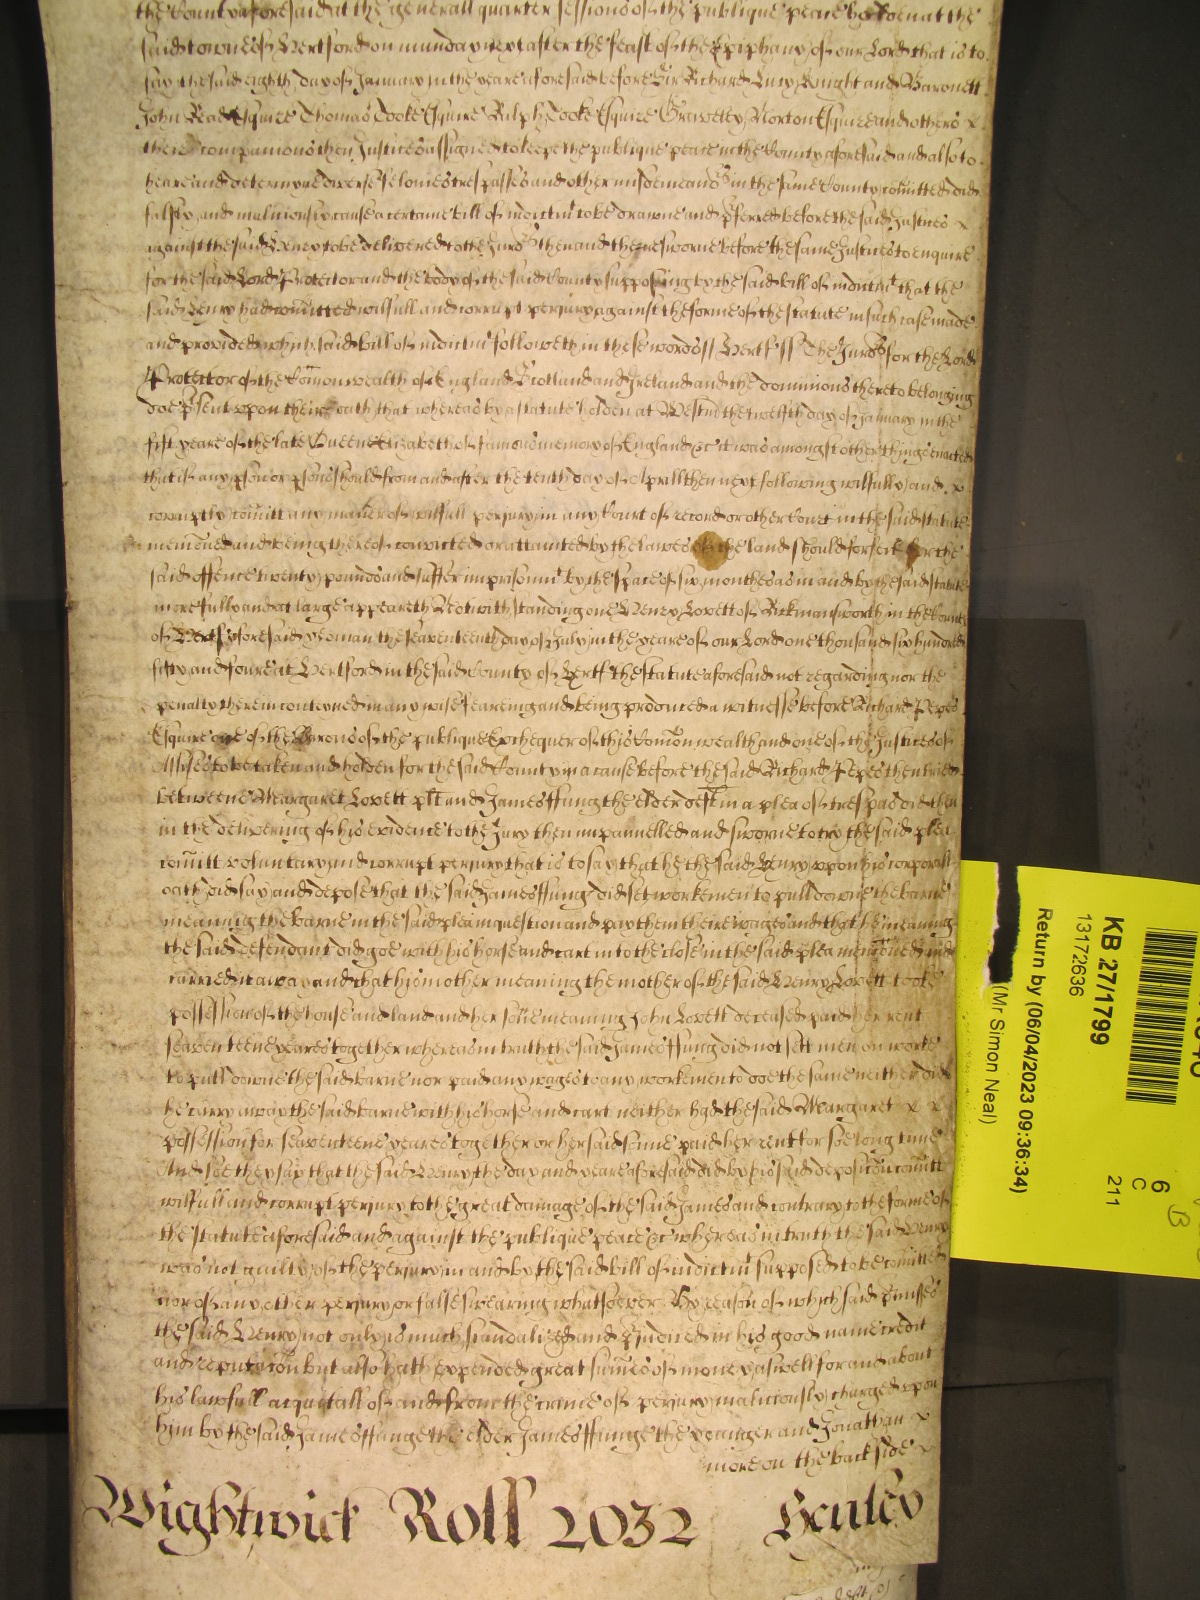 the County aforesaid at the generall quarter sessions of the publique peace holden at the
said towne of Hertford on munday next after the feast of the Epiphany of our Lord that is to
say the said eighth day of January in the yeare aforesaid before Sir Richard Lucy Knight and Baronett
John Read Esquire Thomas Tooke Esquire Ralph Tooke Esquire Gravelley Norton Esquire and others x
their companions then Justices assigned to keepe the publique peace in the County aforesaid and also to
heare and determyne diverse felonies trespasses and other misdemeano:rs in the same County com̃itted did
falsly and maliciously cause a certaine bill of indictmt to be drawne and pferred before the said Justices x
against the said Henry to be delivered to the Juro:rs then and there sworne before the same Justices to enquire
for the said Lord Protector and the body of the said County supposing by the said bill of indictmt that the
said Henry had com̃itted wilfull and corrupt perjury against the forme of the statute in such case made
and provided which said bill of indictmt followeth in these words ss Hertf ss The Juro:rs for the Lord
Protector of the Com̃onwealth of England Scotland and Ireland and the dominions thereto belonging
doe psent upon their oath that whereas by a statute holden at Westm̃ the twelfth day of January in the
fift yeare of the late Queen Elizabeth of famous memory of England &c it was amongst other things enacted
that if any pson or psons should from and after the tenth day of Aprill then next following wilfully and x
corruptly com̃itt any maner of wilfull perjury in any Court of record or other Court in the said statute
menc̃oned and being thereof convicted or attainted by the lawes of the land should forfeit for the
said offence twenty pounds and suffer imprisonmt by the space of six monthes as in and by the said statute
more fully and at large appeareth Notwithstanding one Henry Lovett of Rickmansworth in the County
of Hertf aforesaid yeoman the seaventeenth day of July in the yeare of our Lord one thousand six hundred
fifty and foure at Hertford in the said County of Hertf the statute aforesaid not regarding nor the
penalty therein conteyned in any wise feareing and being produced a witnesse before Richard Pepes
Esquire one of the Barons of the publique Exchequer of this Com̃onwealth and one of the Justices of
Assises to be taken and holden for the said County in a cause before the said Richard Pepes then tried
betweene Margaret Lovett plt and James ffung the elder deft in a plea of trespas did then
in the delivering of his evidence to the Jury then impannelled and sworne to try the said plea
com̃itt voluntary and corrupt perjury that is to say that he the said Henry upon his corporall
oath did say and depose that the said James ffung did sett workemen to pull downe the barne
meaning the barne in the said plea in question and pay them their wages and that he meaning
the said defendant did goe with his horse and cart into the close in the said plea menc̃oned and
carried it away and that his mother meaning the mother of the said Henry Lovett tooke
possession of the house and land and her son̄e meaning John Lovett deceased paid her rent
seaventeene yeares together whereas in truth the said James ffung did not sett men on worke
to pull downe the said barne nor paid any wages to any workemen to doe the same neither did
he carry away the said barne with his horse and cart neither had the said Margaret x x
possession for seaventeene yeares together or her said sonne paid her rent for soe long time
And soe they say that the said Henry the day and yeare aforesaid did by his said deposic̃on com̃itt
wilfull and corrupt perjury to the great damage of the said James and contrary to the forme of
the statute aforesaid and against the publique peace &c whereas in truth the said Henry
was not guilty of the perjury in and by the said bill of indictmt supposed to be com̃itted
nor of any other perjury or false swearing whatsoever By reason of which said pmisses
the said Henry not only is much scandalized and piudiced in his good name credit
and reputac̃on but also hath expended great sum̃es of money aswell for and about
his lawfull acquitall of and from the crime of perjury maliciously charged upon
him by the said James ffunge the elder James ffunge the younger and Jonathan x
more on the back side x
Wightwick Roll 2032 Henley
KB 27/1799
13172636
Return by (06/04/2023 09:36:34)
(Mr Simon Neal)
6
C
211